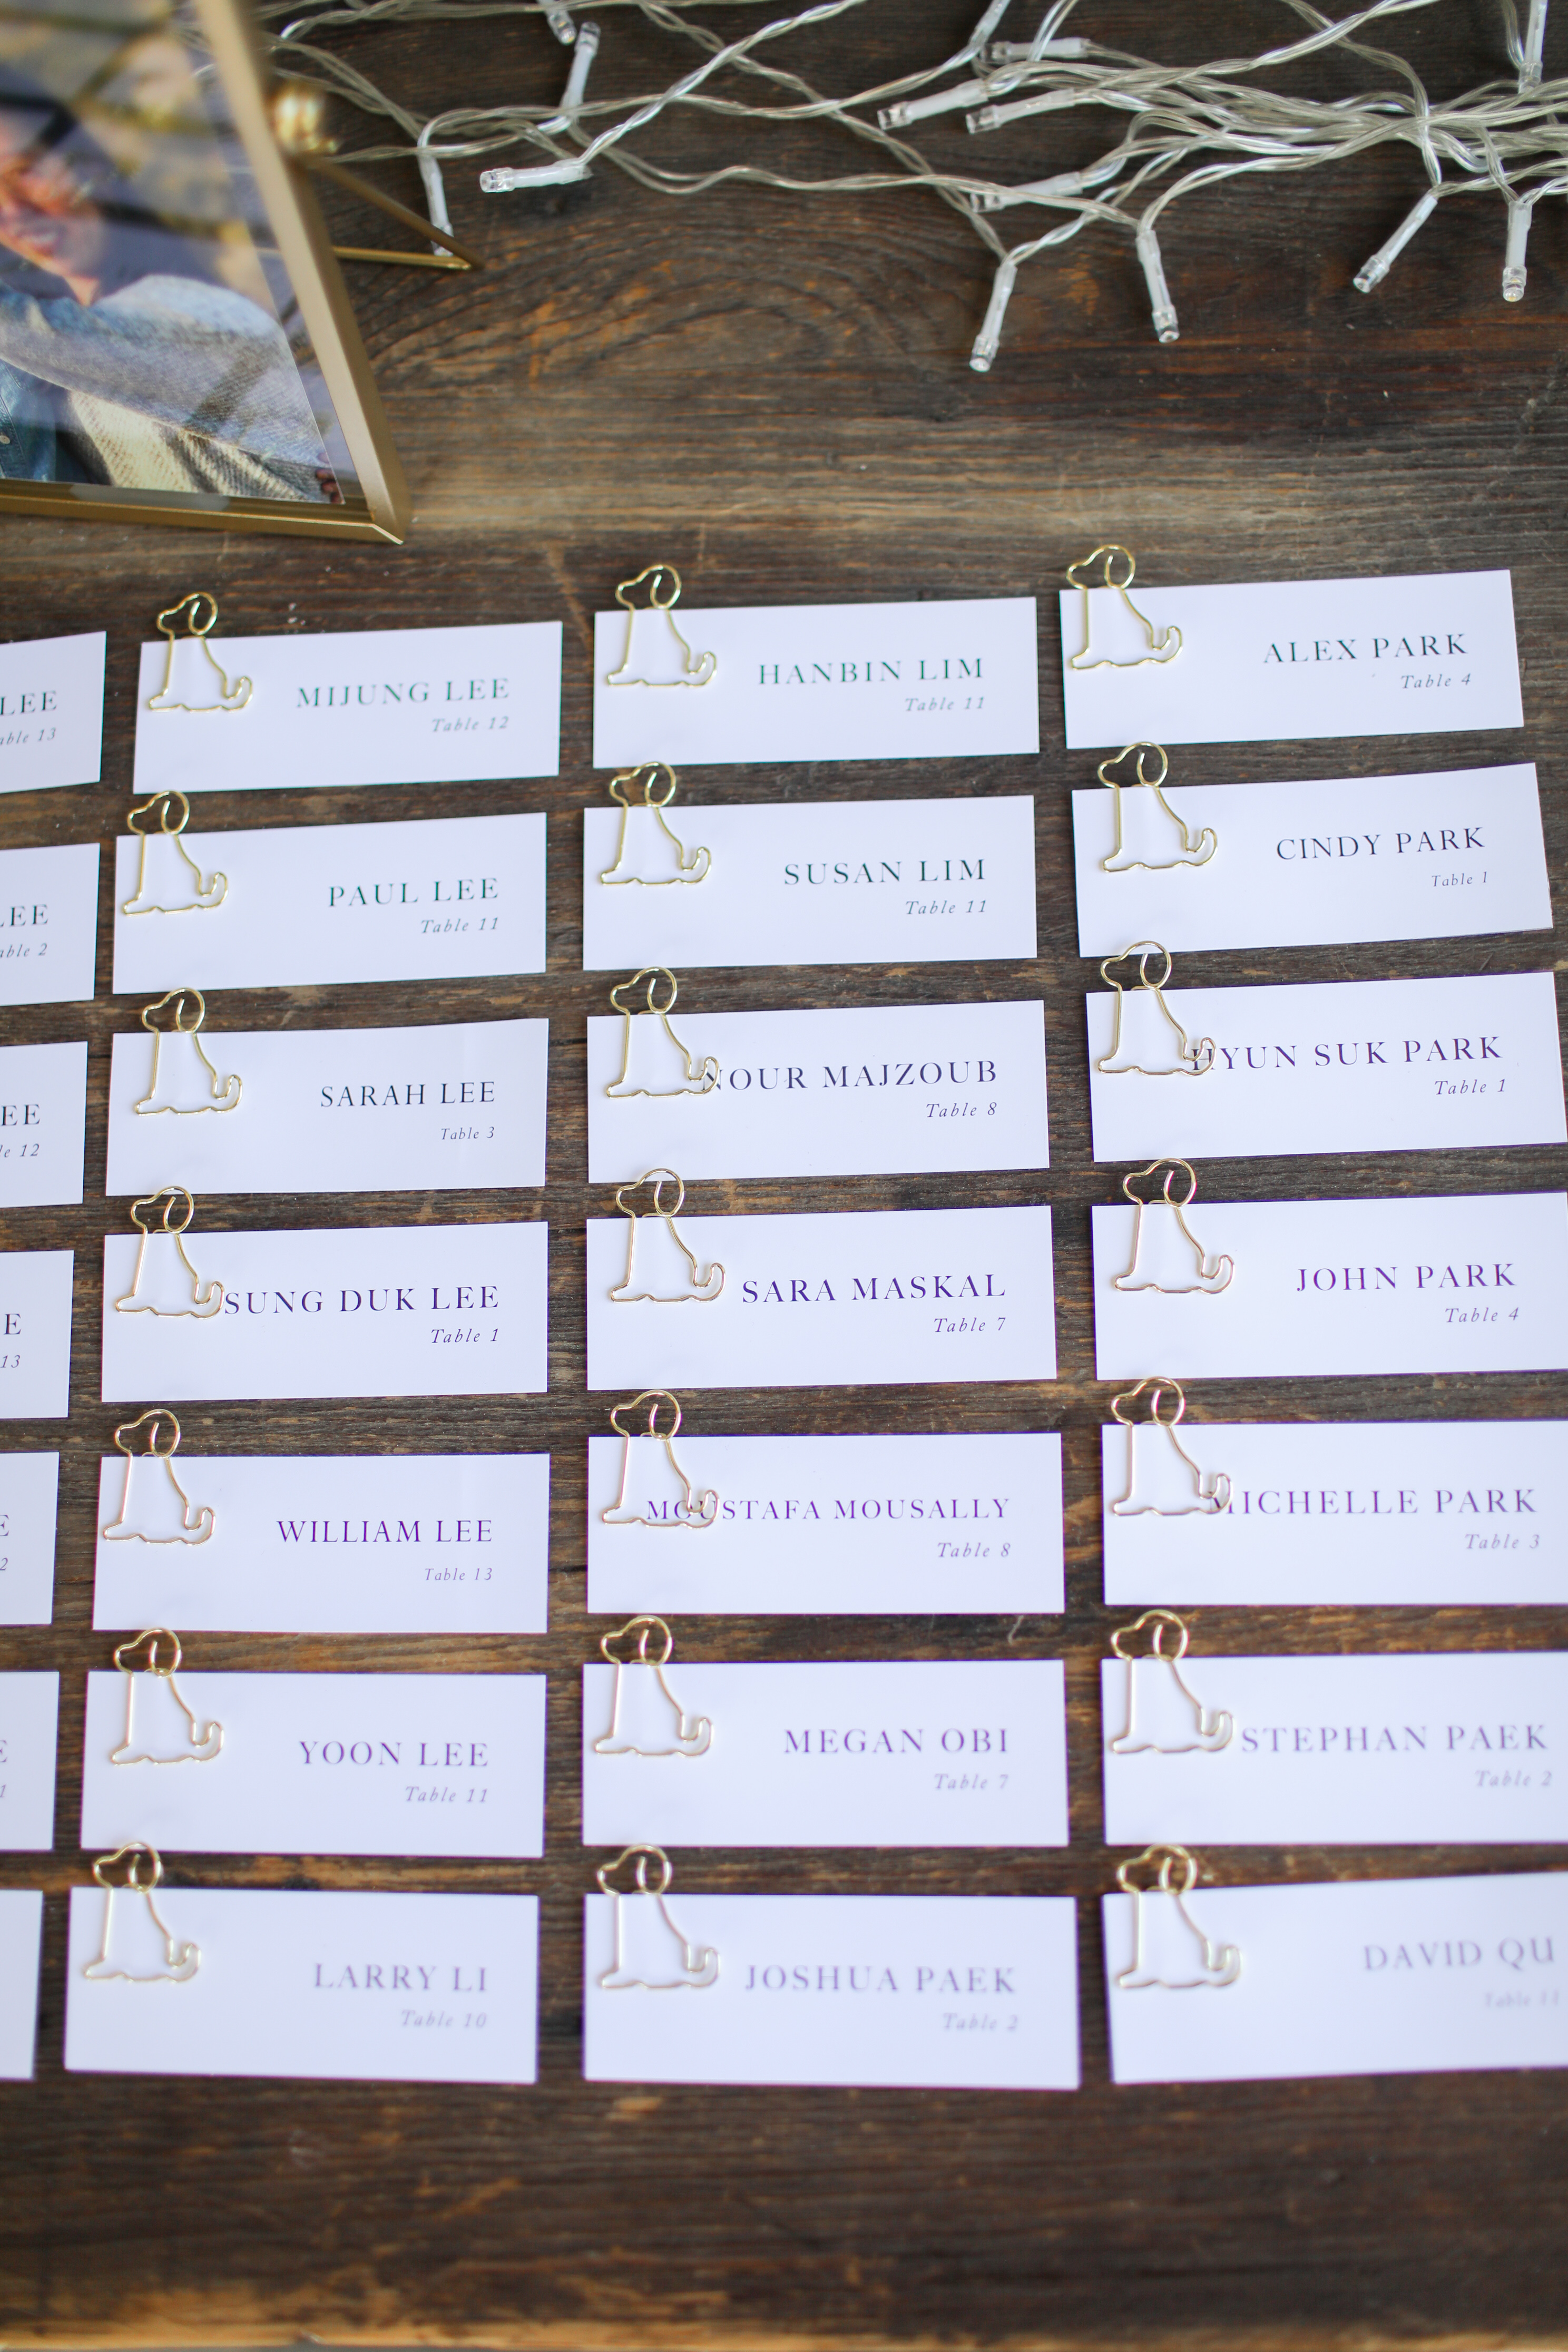 LEE
Table 13
MIJUNG LEE
Table 12
HANBIN LIM
Table 11
ALEX PARK
Table 4
LEE
Table 2
PAUL LEE
Table 11
SUSAN LIM
Table 11
CINDY PARK
Table 1
LEE
12
SARAH LEE
Table 3
NOUR MAJZOUB
Table 8
HYUN SUK PARK
Table 1
13
SUNG DUK LEE
Table 1
SARA MASKAL
Table 7
JOHN PARK
Table 4
WILLIAM LEE
Table 13
MOUSTAFA MOUSALLY
Table 8
MICHELLE PARK
Table 3
YOON LEE
Table 11
MEGAN OBI
Table 7
STEPHAN PAEK
Table 2
LARRY LI
Table 10
JOSHUA PAEK
Table 2
DAVID QU
Table 11